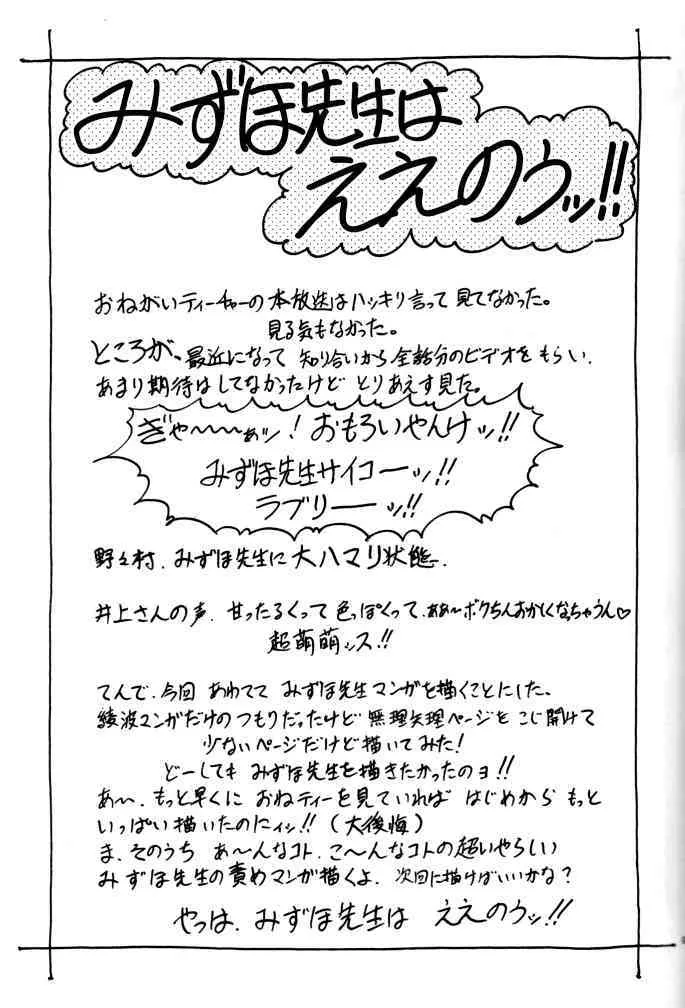 みずほ先生は
ええのうッ!!
おねがいティーチャーの本放送はハッキリ言って見てなかった。
見る気もなかった。
ところが、最近になって知り合いから全話分のビデオをもらい、
あまり期待はしてなかったけどとりあえず見た。
ぎゃ〜〜〜ぁッ!おもろいやんけッ!!
みずほ先生サイコーーッ!!
ラブリーーッ!!
野々村、みずほ先生に大ハマリ状態。
井上さんの声、甘ったるくって色っぽくって、ああ〜ボクちんおかしくなっちゃうん♡
超萌萌ッス!!
てんで、今回あわててみずほ先生マンガを描くことにした、
綾波マンガだけのつもりだったけど無理矢理ページをこじ開けて
少ないページだけど描いてみた!
どーしてもみずほ先生を描きたかったのョ!!
あ〜、もっと早くにおねティーを見ていればはじめからもっと
いっぱい描いたのにィッ!!(大後悔)
ま、そのうちあ〜んなコト、こ〜んなコトの超いやらしい
みずほ先生の責めマンガ描くよ、次回に描けばいいかな?
やっは、みずほ先生はええのうッ!!